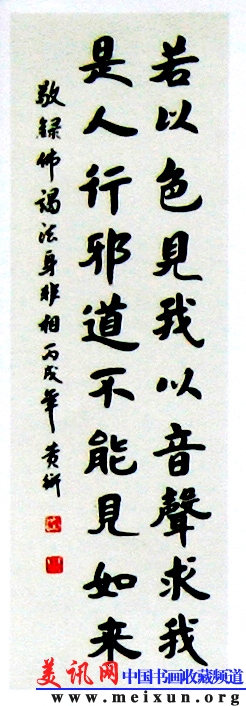 若以色見我以音聲求我
是人行邪道不能見如来
敬録佛謁法身非相丙戌年黄
美讯网 中国书画收藏频道
www.meixun.org